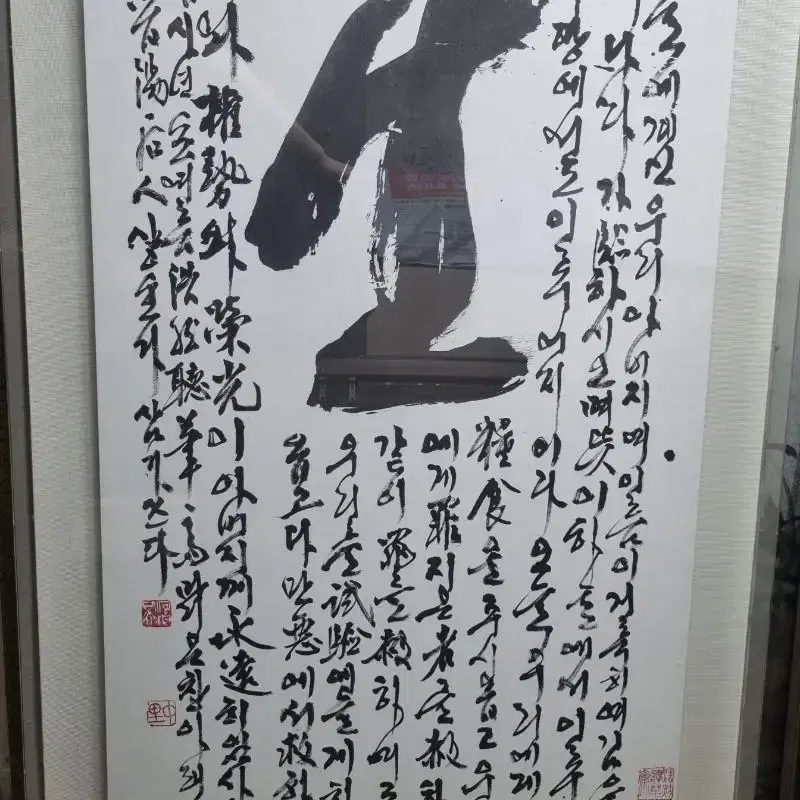 늘에계신 우리 아버지며 이름이 거룩히 여김을
나라가 臨하시오며 뜻이 하늘에서 이루
땅에서도 이루어지이다 오늘 우리에게
糧食을 주시옵고 우
에게 罪지은者를 赦하
같이 罪를 赦하여
우리를 試驗에 들게하
옵고 다만 惡에서 救하
와 權勢와 榮光이 아버지께 永遠히 있사
년 여름 浩然聽筆
陽后人 삼가쓰다